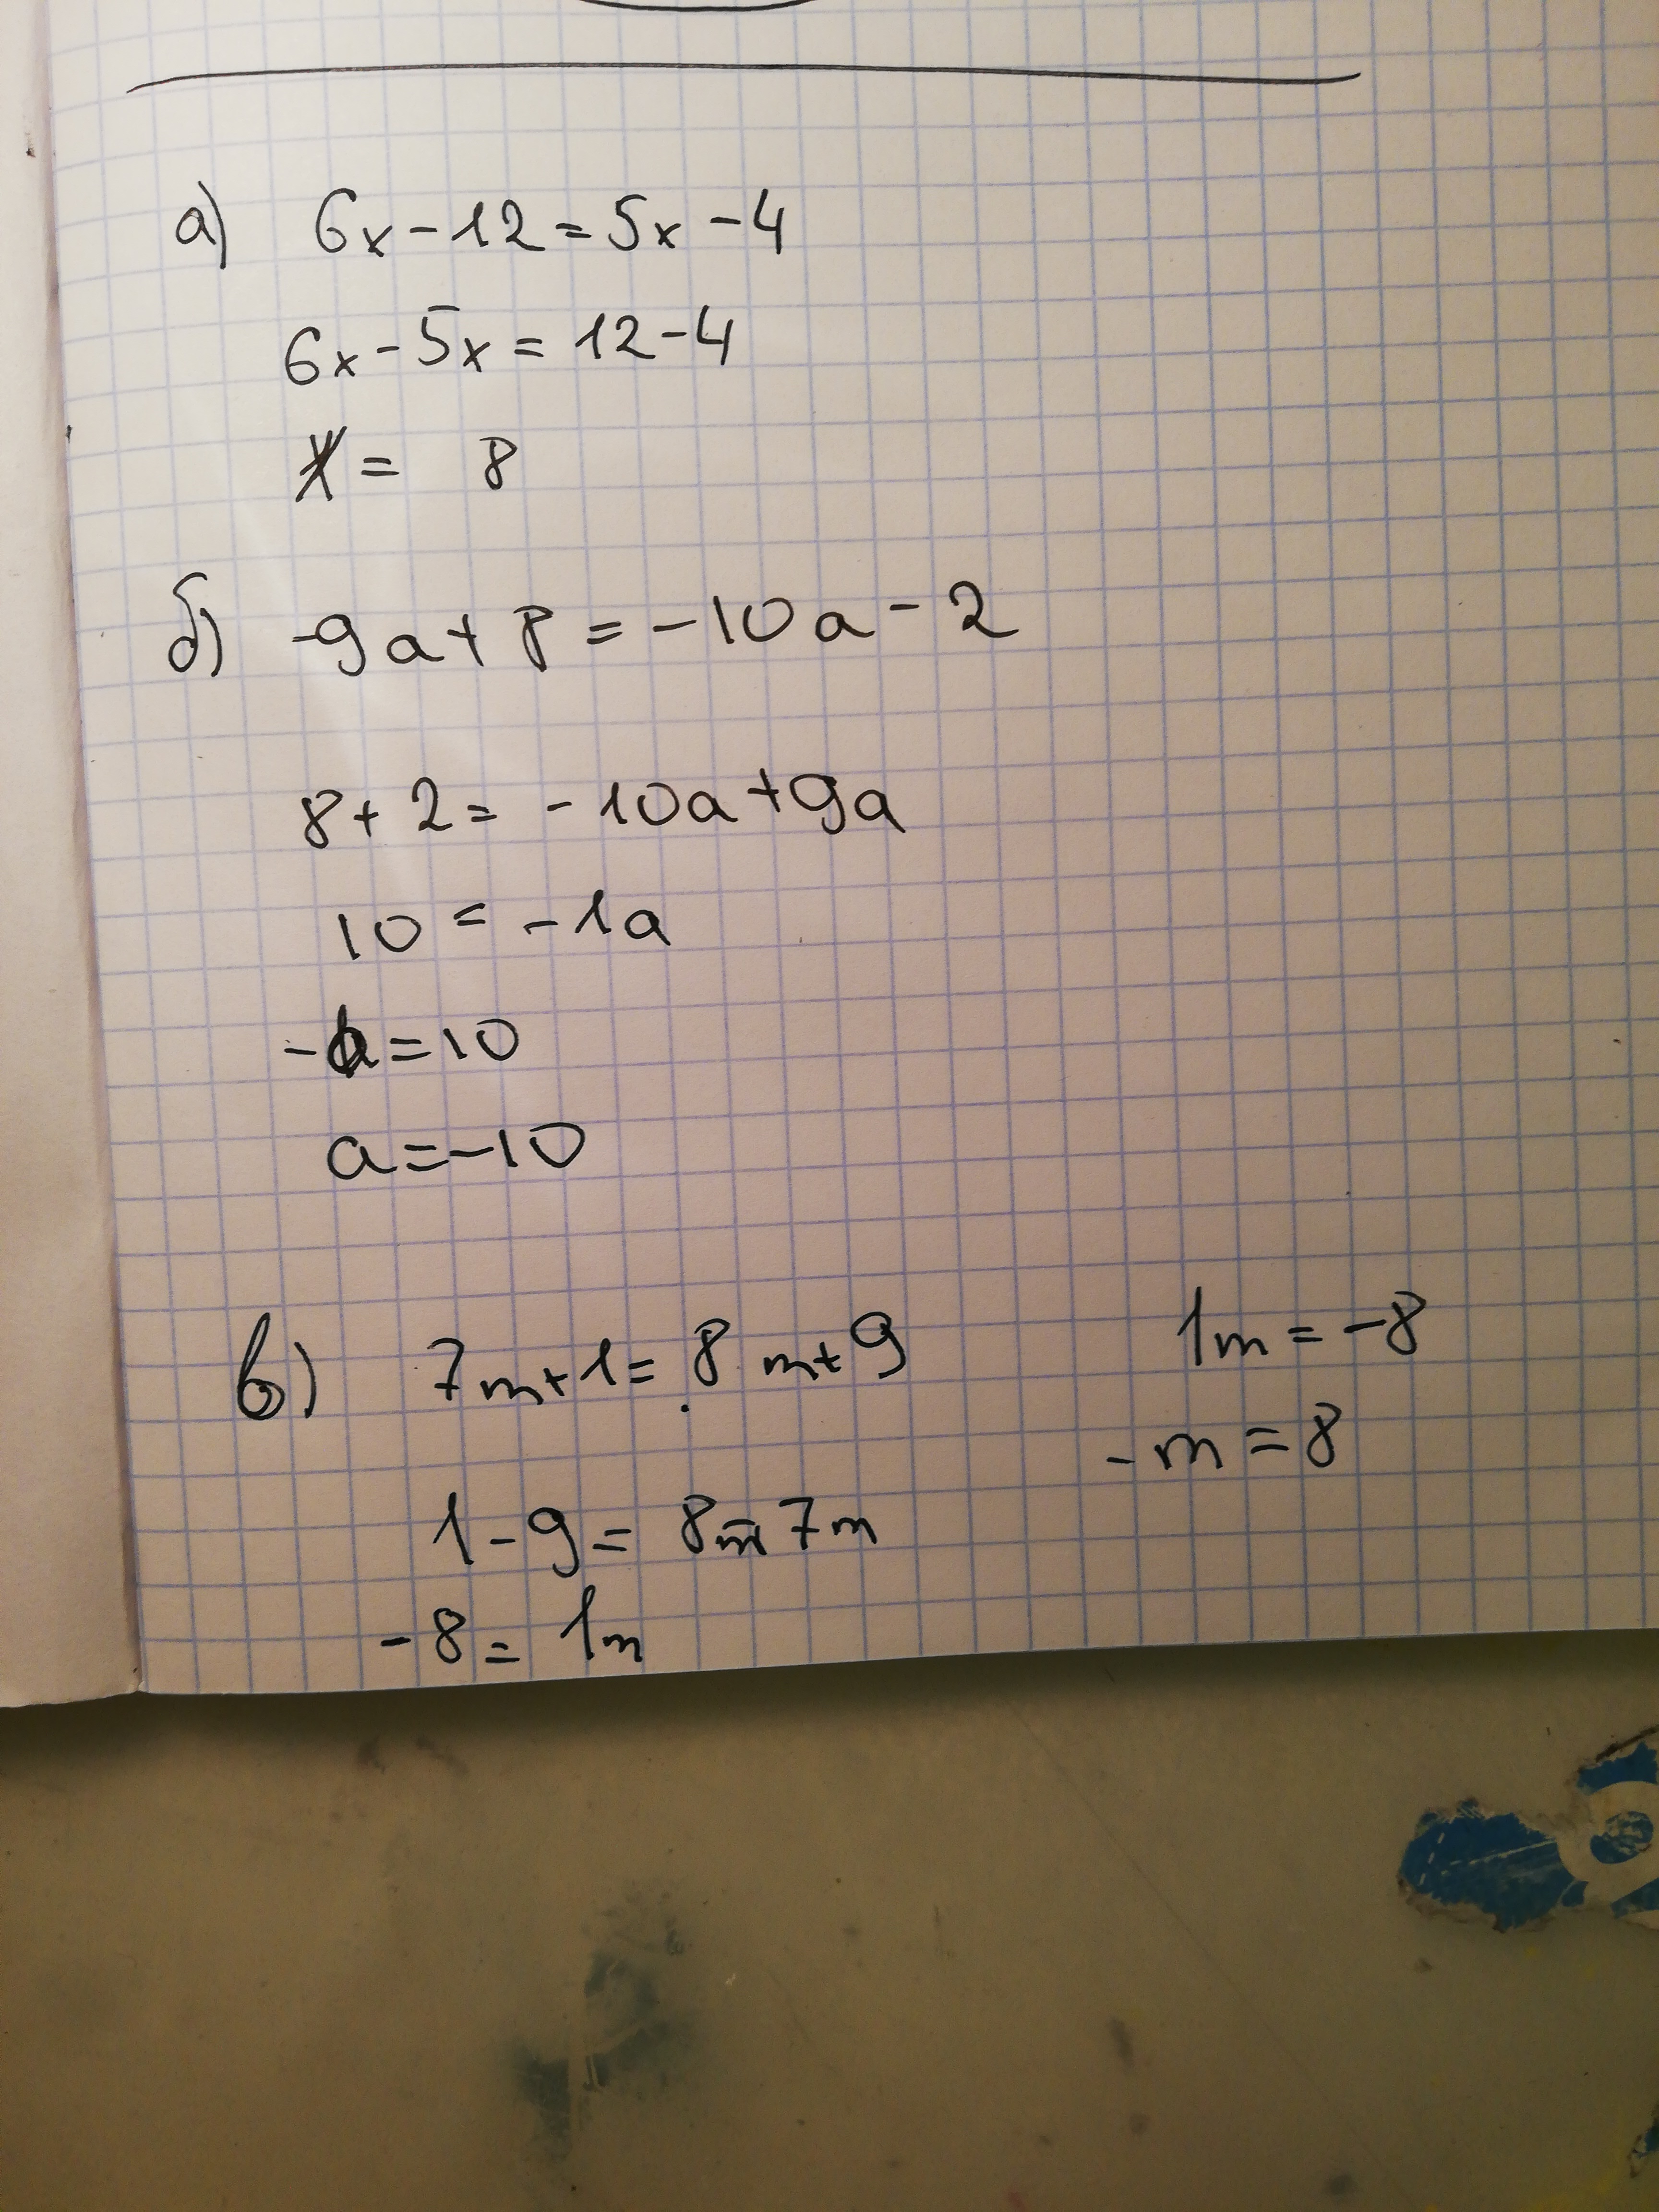 а) 6x-12=5x-4
6x-5x=12-4
x= 8
б) -9a+8=-10a-2
8+2=-10a+9a
10=-1a
-a=10
a=-10
в) 7m+1=8m+9
1-9=8m-7m
-8=1m
1m=-8
-m=8